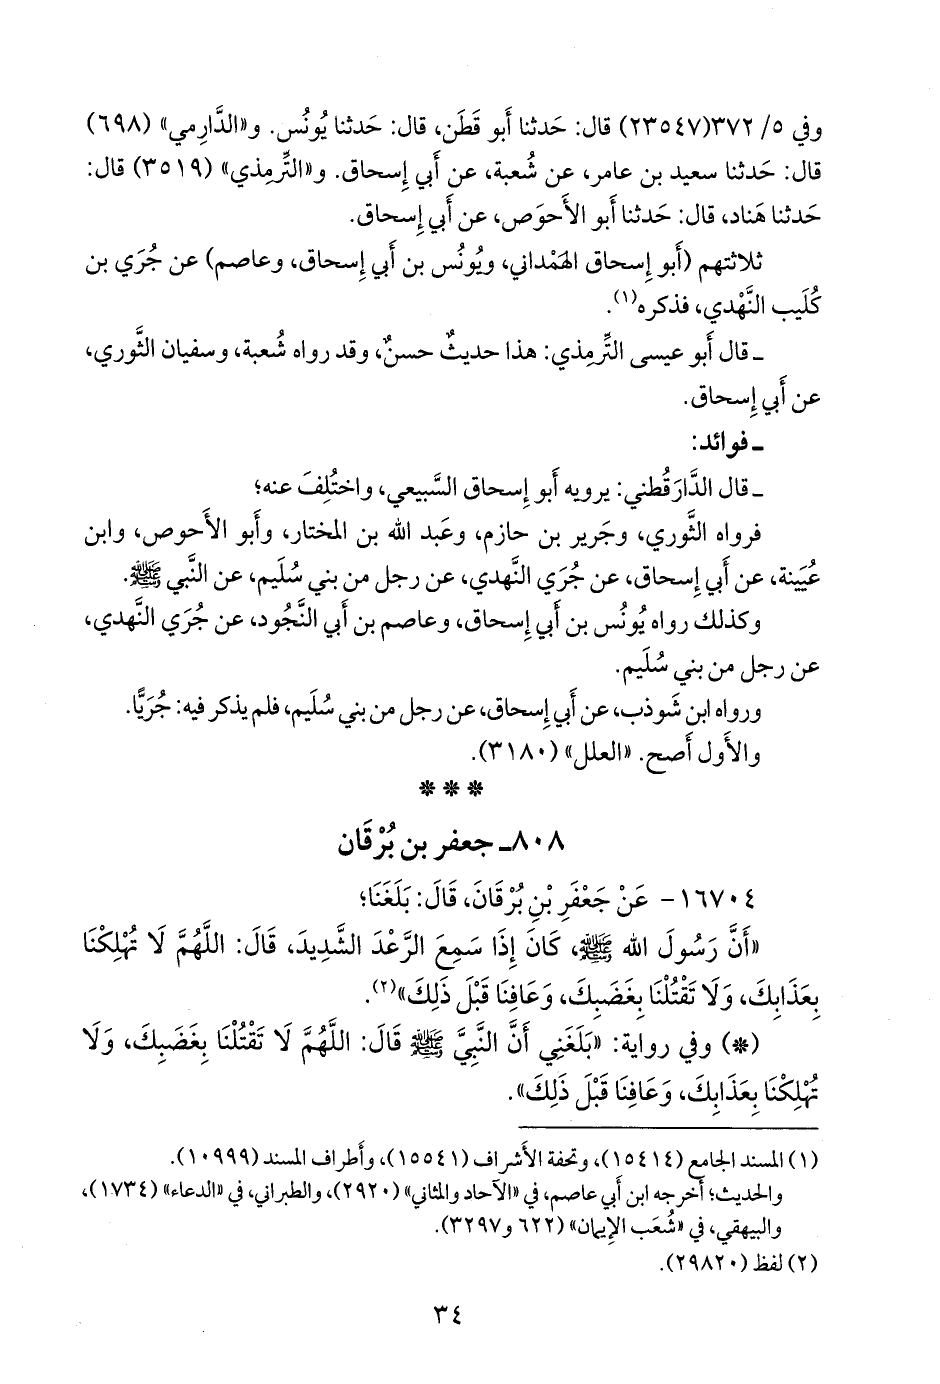 وفي ٥/ ٣٧٢(٢٣٥٤٧) قال: حَدثنا أَبو قَطَن، قال: حَدثنا يُونُس. و«الدَّارِمي» (٦٩٨)
قال: حَدثنا سعيد بن عامر، عن شُعبة، عن أَبي إِسحاق. و«التِّرمِذي» (٣٥١٩) قال:
حَدثنا هَناد، قال: حَدثنا أَبو الأَحوَص، عن أَبي إِسحاق.
ثلاثتهم (أَبو إِسحاق الهَمْداني، ويُونُس بن أَبي إِسحاق، وعاصم) عن جُرَي بن
كُلَيب النَّهْدي، فذكره(١).
ـ قال أَبو عيسى التِّرمِذي: هذا حديثٌ حسنٌ، وقد رواه شُعبة، وسفيان الثَّوري،
عن أَبي إِسحاق.
ـ فوائد:
ـ قال الدَّارَقُطني: يرويه أَبو إِسحاق السَّبيعي، واختُلِفَ عنه؛
فرواه الثَّوري، وجَرير بن حازم، وعَبد الله بن المختار، وأَبو الأَحوص، وابن
عُيَينة، عن أَبي إِسحاق، عن جُرَي النَّهدي، عن رجل من بني سُلَيم، عن النَّبي ﷺ.
وكذلك رواه يُونُس بن أَبي إِسحاق، وعاصم بن أَبي النَّجُود، عن جُرَي النَّهدي،
عن رجل من بني سُلَيم.
ورواه ابن شَوذب، عن أَبي إِسحاق، عن رجل من بني سُلَيم، فلم يذكر فيه: جُرَيًّا.
والأَول أَصح. «العلل» (٣١٨٠).
* * *
٨٠٨ـ جعفر بن بُرْقَان
١٦٧٠٤ - عَنْ جَعْفَرِ بْنِ بُرْقَانَ، قَالَ: بَلَغَنَا؛
«أَنَّ رَسُولَ الله ﷺ، كَانَ إِذَا سَمِعَ الرَّعْدَ الشَّدِيدَ، قَالَ: اللَّهُمَّ لَا تُهْلِكْنَا
بِعَذَابِكَ، وَلَا تَقْتُلْنَا بِغَضَبِكَ، وَعَافِنَا قَبْلَ ذَلِكَ»(٢).
(*) وفي رواية: «بَلَغَنِي أَنَّ النَّبِيَّ ﷺ قَالَ: اللَّهُمَّ لَا تَقْتُلْنَا بِغَضَبِكَ، وَلَا
تُهْلِكْنَا بِعَذَابِكَ، وَعَافِنَا قَبْلَ ذَلِكَ».
(١) المسند الجامع (١٥٤١٤)، وتحفة الأَشراف (١٥٥٤١)، وأَطراف المسند (١٠٩٩٩).
والحديث؛ أخرجه ابن أَبي عاصم، في «الآحاد والمثاني» (٢٩٢٠)، والطبراني، في «الدعاء» (١٧٣٤)،
والبيهقي، في «شُعَب الإِيمان» (٦٢٢ و٣٢٩٧).
(٢) لفظ (٢٩٨٢٠).
٣٤